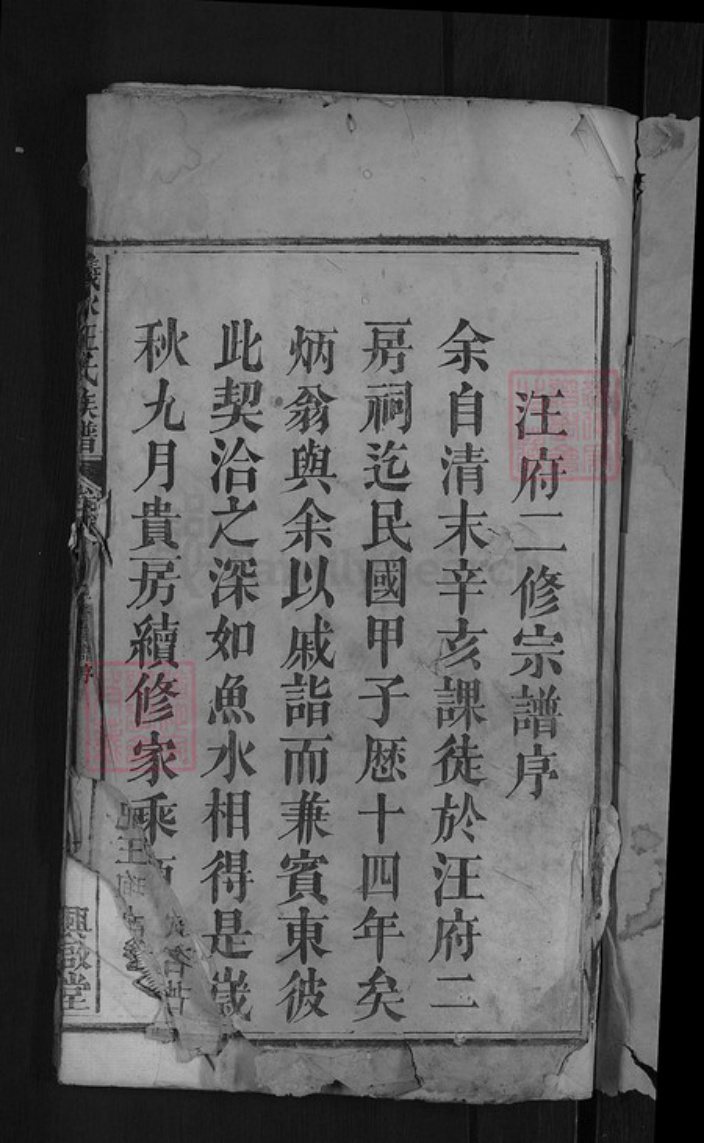 汪府二修宗譜序
余自清末辛亥課徒於汪府二
房祠迄民國甲子歷十四年矣
炳翁與余以戚誼而兼賓東彼
此契洽之深如魚水相得是歲
秋九月貴房續修家乘
汪氏族譜
興啟堂